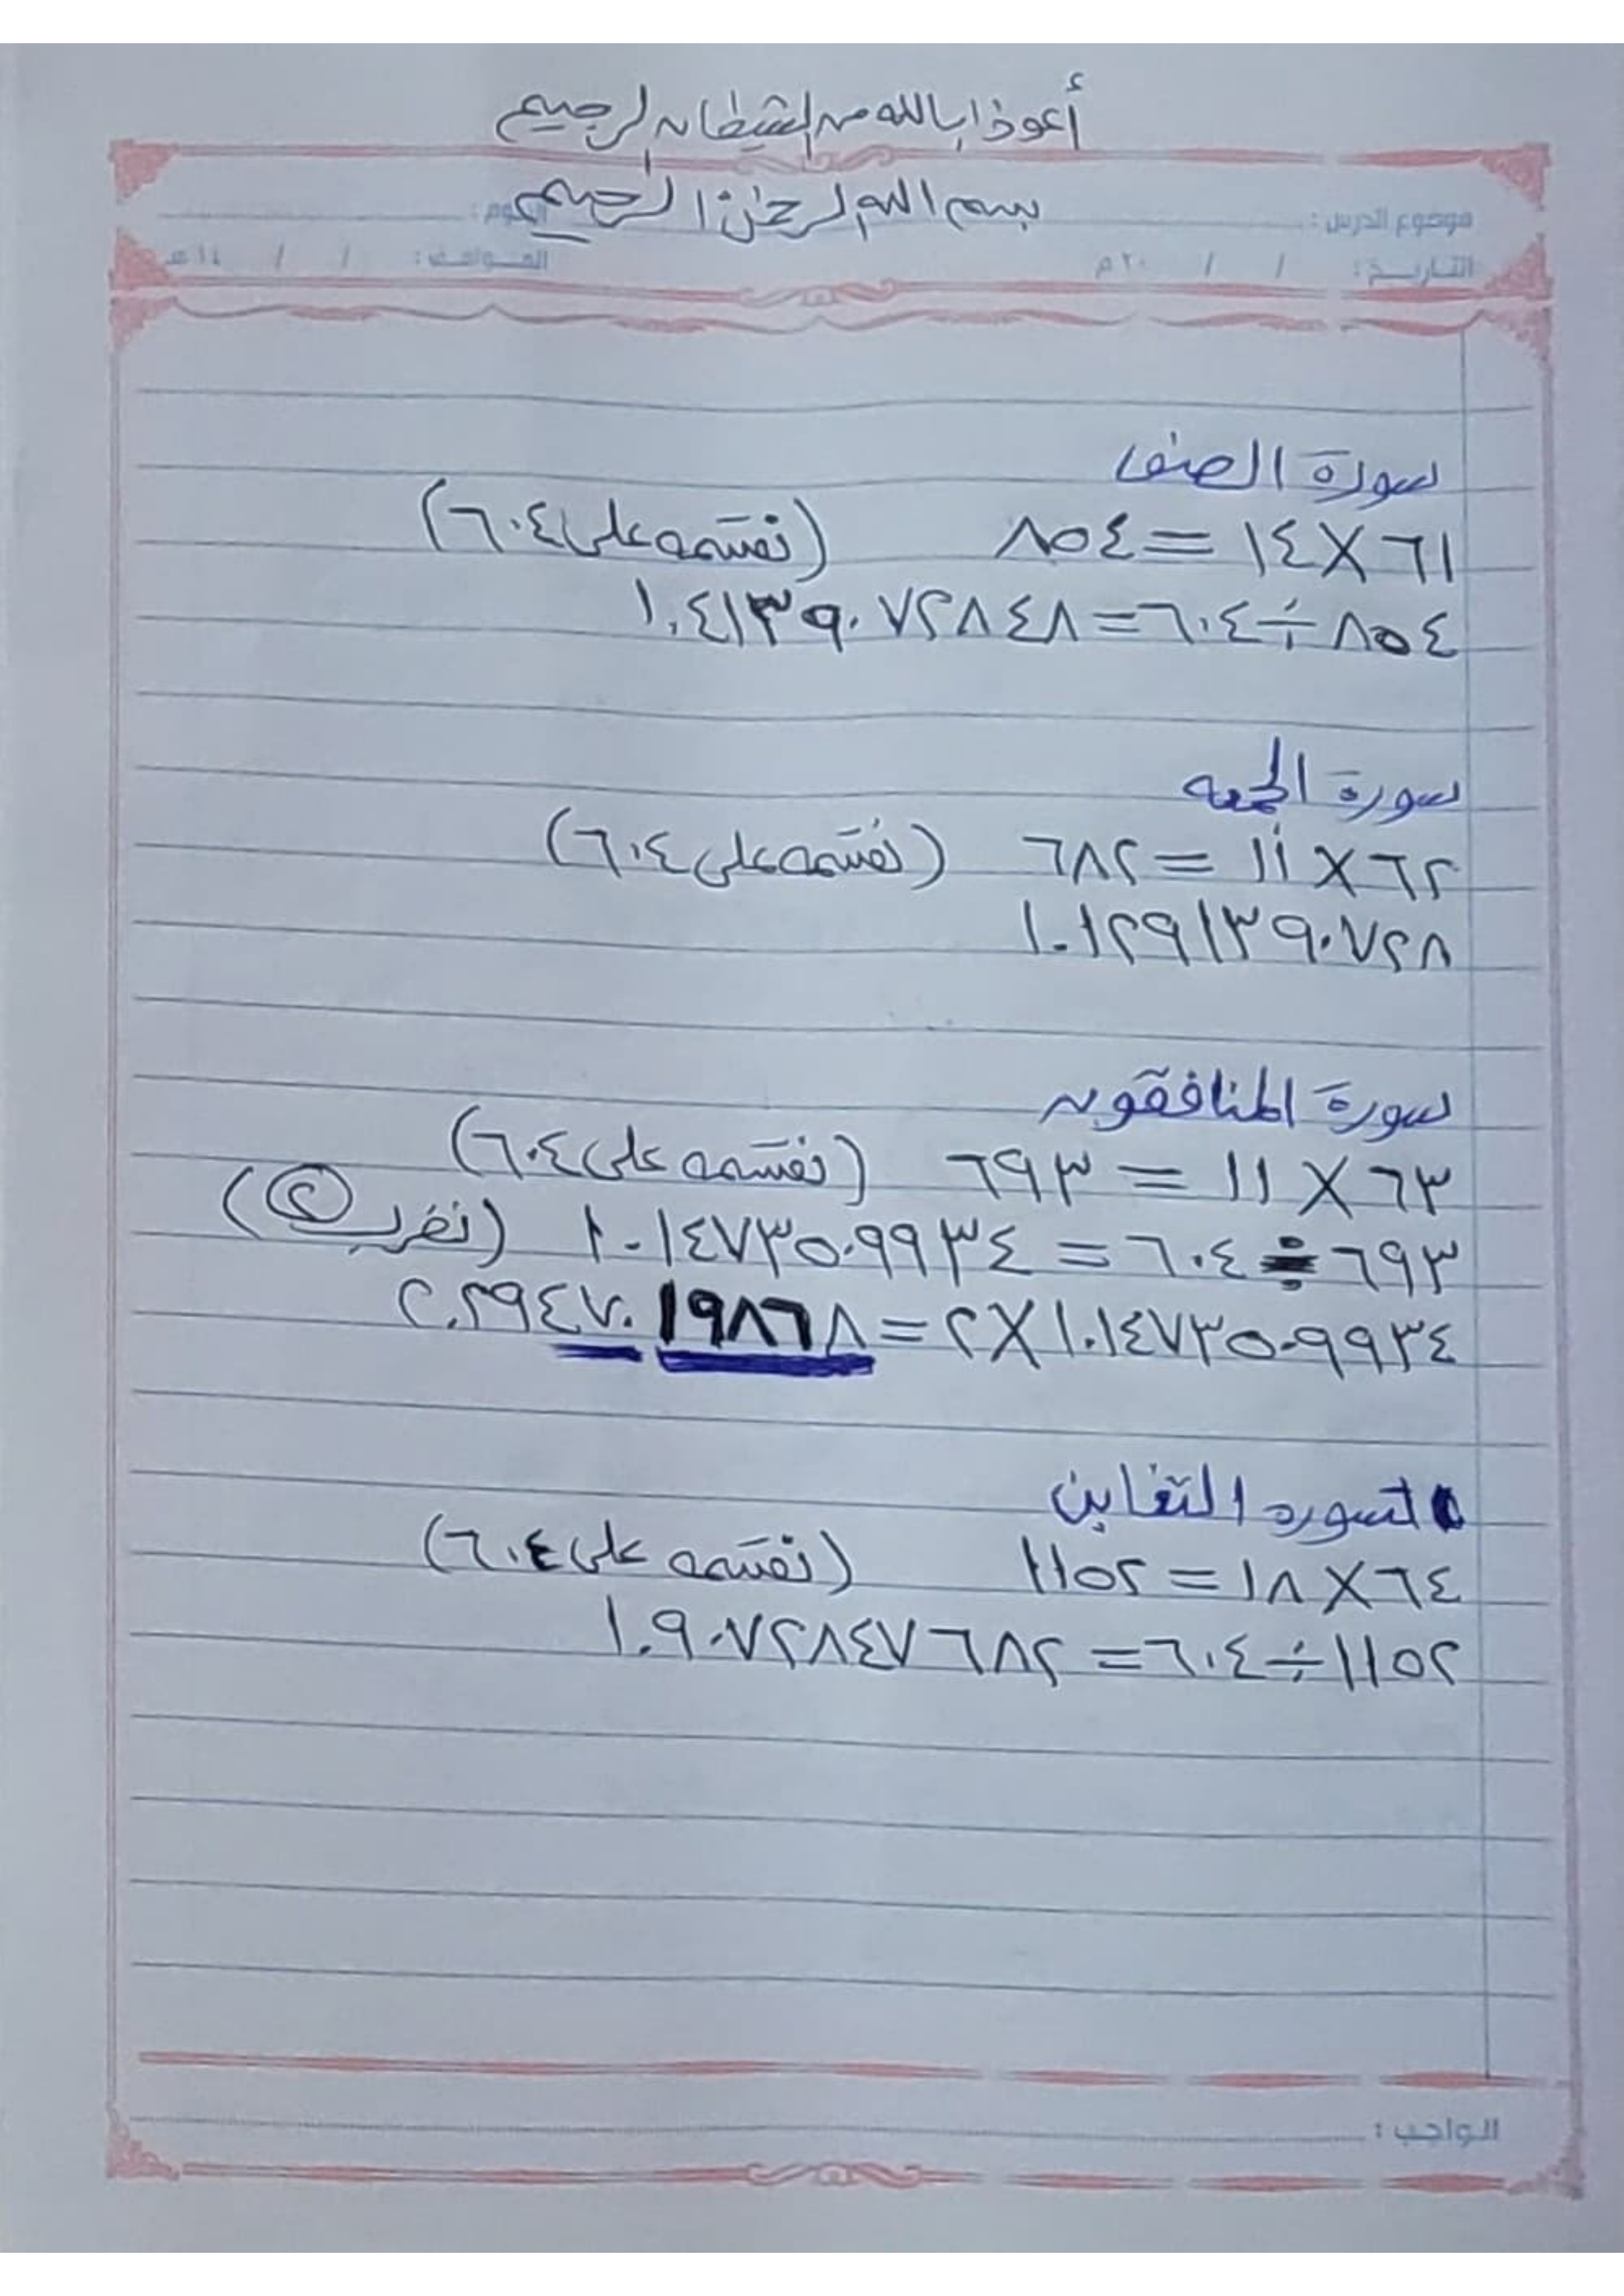 أعوذ بالله من الشيطان الرجيم
بسم الله الرحمن الرحيم
موضوع الدرس : اليوم :
التاريخ : / / ٢٠ م الموافق : / / ١٤ هـ
سورة الصف
٦١ × ١٤ = ٨٥٤ (نقسمه على ٦٠٤)
٨٥٤ ÷ ٦٠٤ = ١.٤١٣٩٠٧٢٨٤٨
سورة الجمعه
٦٢ × ١١ = ٦٨٢ (نقسمه على ٦٠٤)
١.١٢٩١٣٩٠٧٢٨
سورة المنافقون
٦٣ × ١١ = ٦٩٣ (نقسمه على ٦٠٤)
٦٩٣ ÷ ٦٠٤ = ١.١٤٧٣٥٠٩٩٣٤ (نضرب ٢)
١.١٤٧٣٥٠٩٩٣٤ × ٢ = ٢.٢٩٤٧٠١٩٨٦٨
سوره التغابن
٦٤ × ١٨ = ١١٥٢ (نقسمه على ٦٠٤)
١١٥٢ ÷ ٦٠٤ = ١.٩٠٧٢٨٤٧٦٨٢
الواجب :